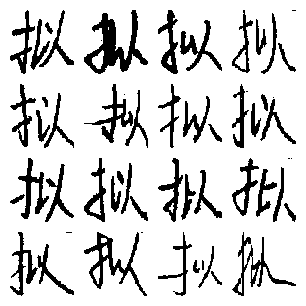 拟拟拟拟
拟拟拟拟
拟拟拟拟
拟拟拟拟